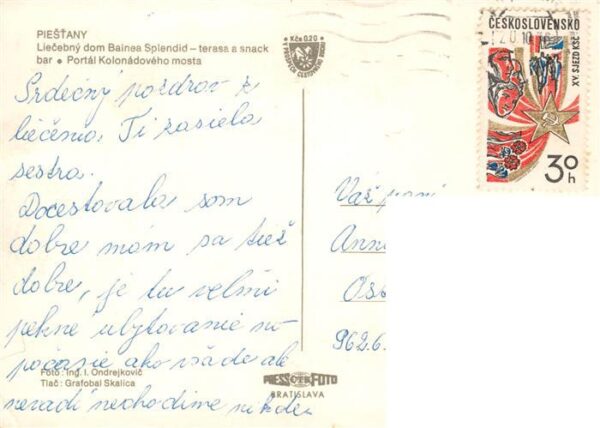 PIEŠŤANY
Liečebný dom Balnea Splendid – terasa a snack
bar ● Portál Kolonádového mosta
Kčs 0,20
Srdečný pozdrav z
liečenia Ti zasiela
sestra.
Docestovala som
dobre mám sa tiež
dobre, je tu veľmi
pekne ubytovanie
počasie ako všade ale
neradi nechodíme nikde
Foto: Ing. I. Ondrejkovič
Tlač: Grafobal Skalica
PRESSFOTO
BRATISLAVA
Váž. pani
Ann
962 6
ČESKOSLOVENSKO
XV. SJEZD KSČ
30 h